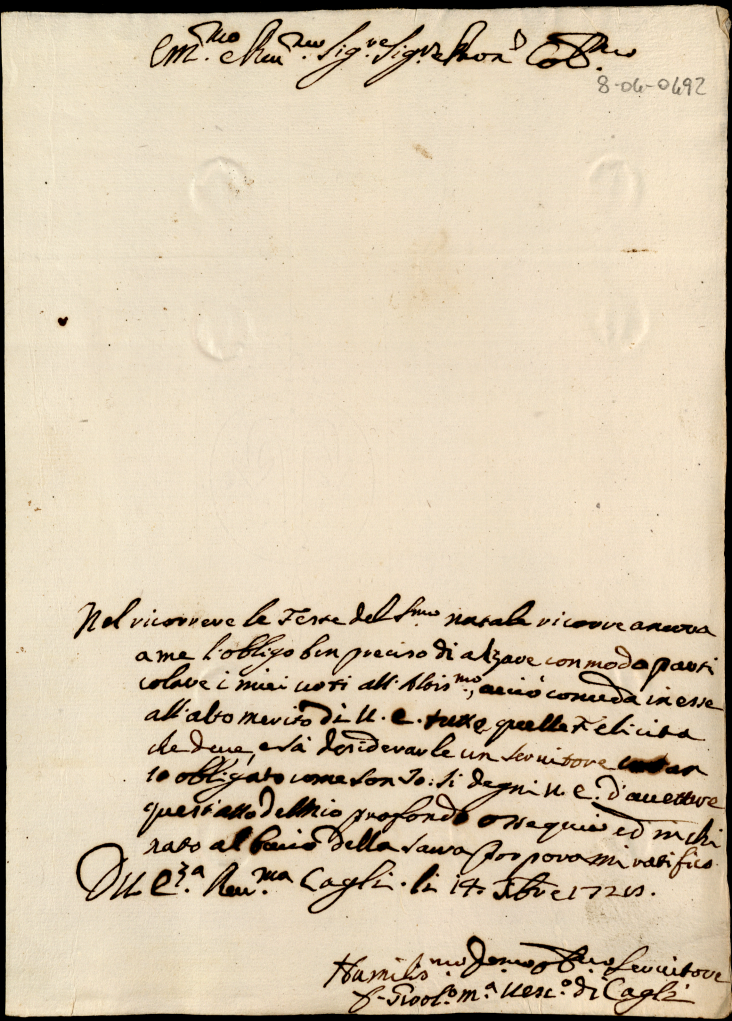 Em.mo e Rev.mo Sig.re Sig.r e Pron.
8-04-0492
Nel ricorrere le Feste del S.mo natale ricorre ancora
a me l'obligo ben preciso di alzare con modo parti
colare i miei voti all'Altis.mo, acciò conceda in esse
all'alto merito di V. E. tutte quelle Felicità
che deve, e sà desiderarle un servitore
to obligato come son Io: si degni V. E. d'accettare
quest'atto del mio profondo ossequio ed inchi
nato al bacio della Sacra porpora mi ratifico
D V E.za Rev.ma Cagli li 14
Humilis.mo Servitore
f. Girol.o m.a Vesc.o di Cagli